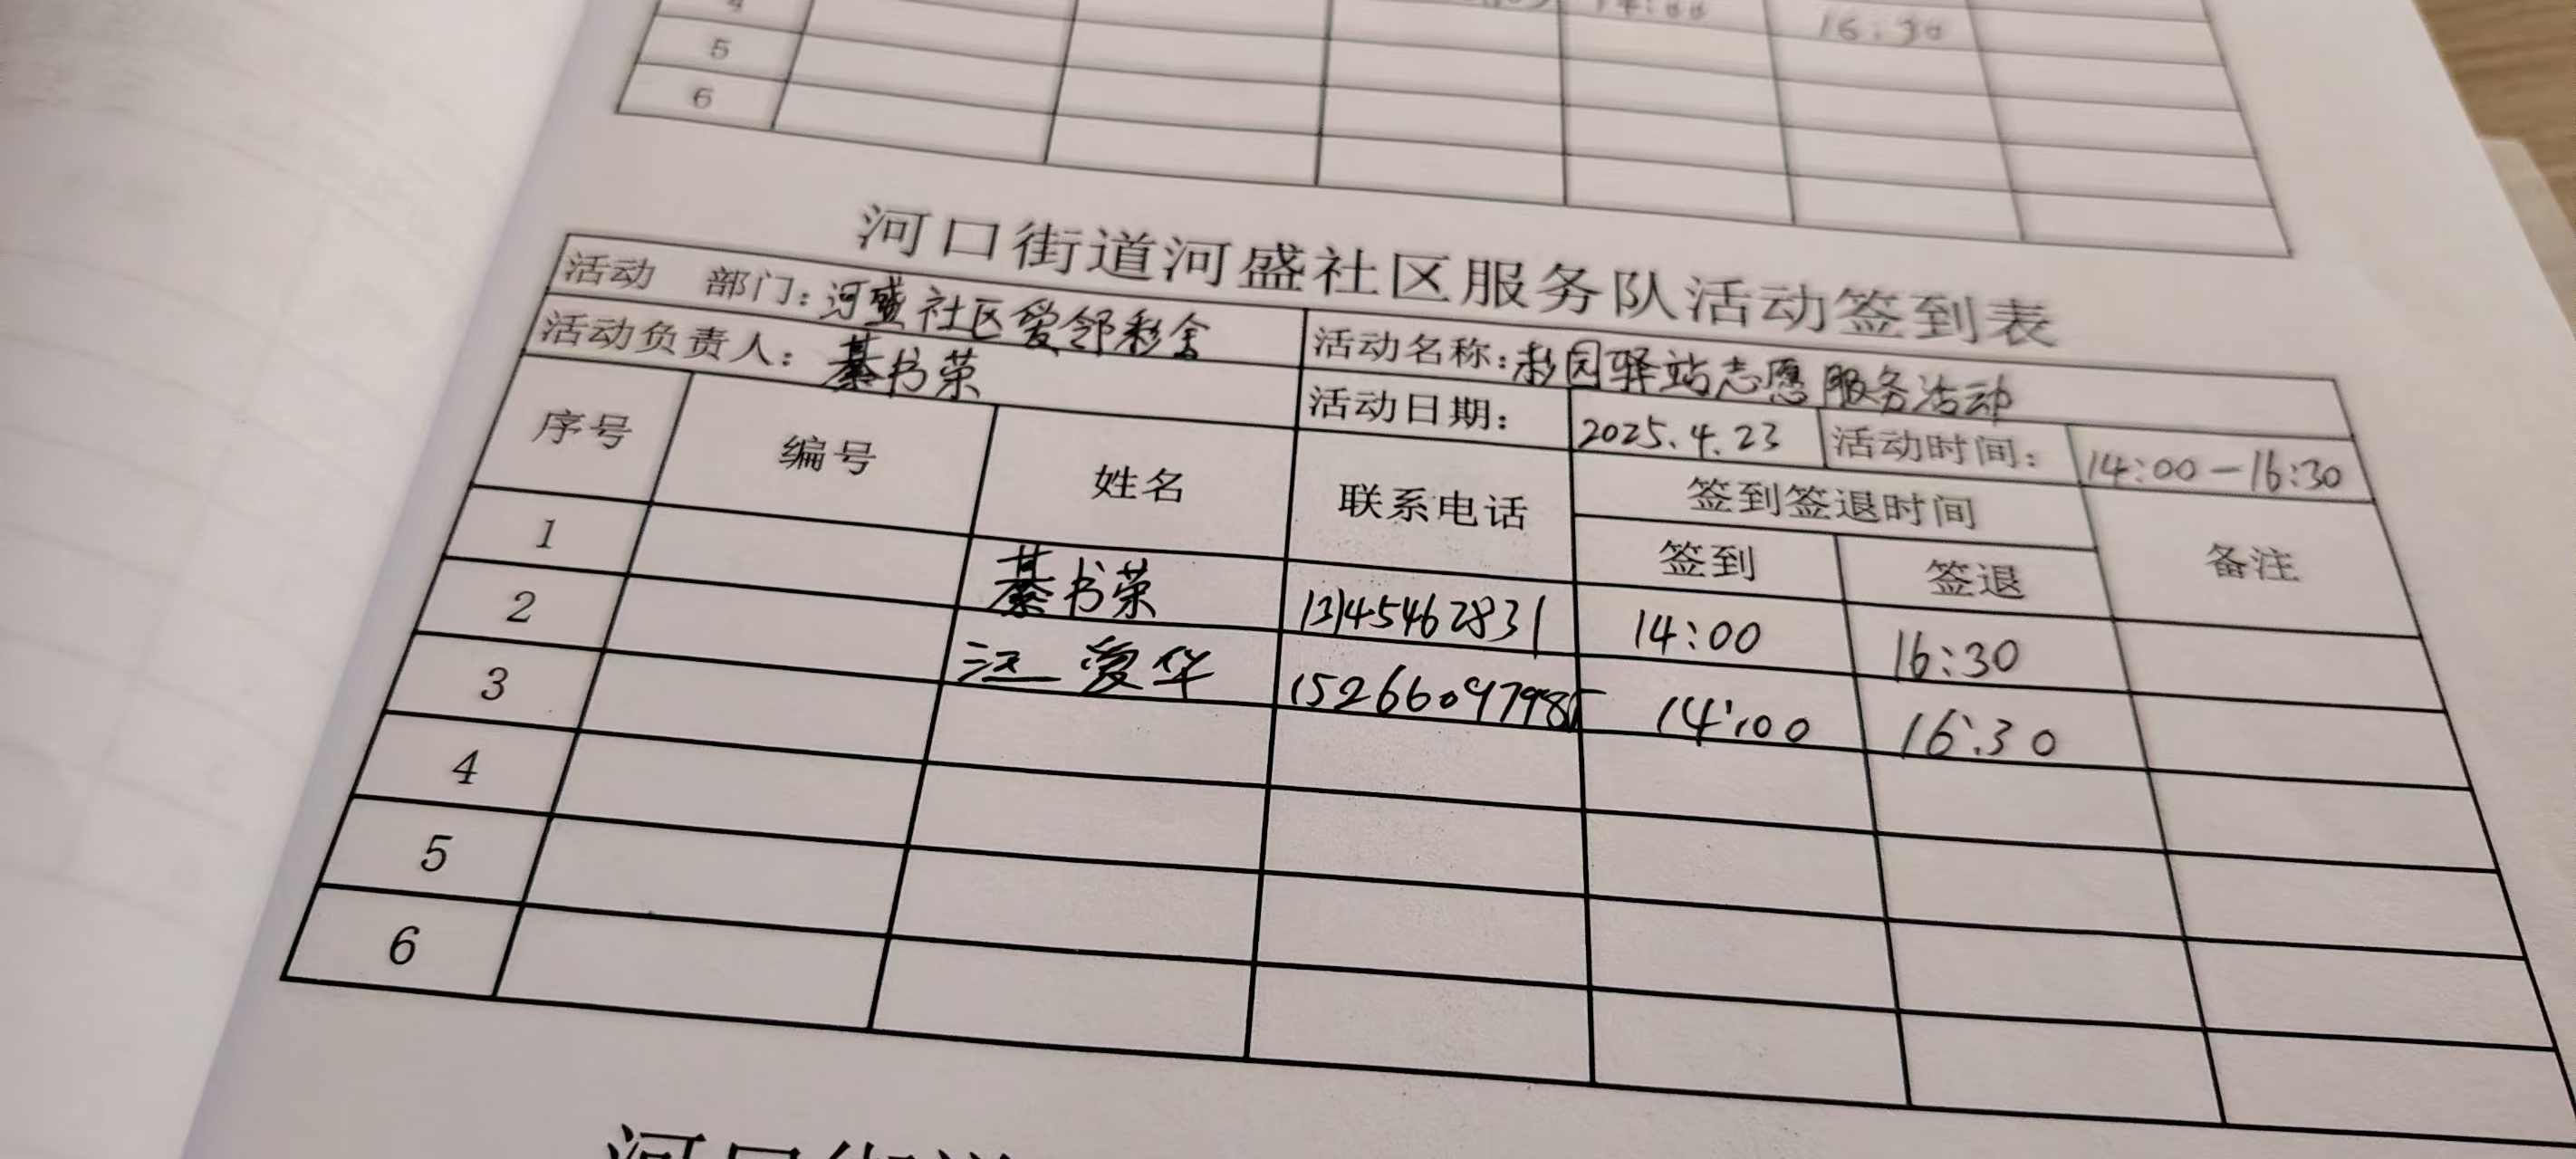 4 14:00 16:30
5
6
河口街道河盛社区服务队活动签到表
活动 部门: 河盛社区爱邻彩舍 活动名称: 彩园驿站志愿服务活动
活动负责人: 綦书荣 活动日期: 2025.4.23 活动时间: 14:00-16:30
序号 编号 姓名 联系电话 签到签退时间 备注
签到 签退
1 綦书荣 13145462831 14:00 16:30
2 汪爱华 15266097985 14:00 16:30
3
4
5
6
河口街道